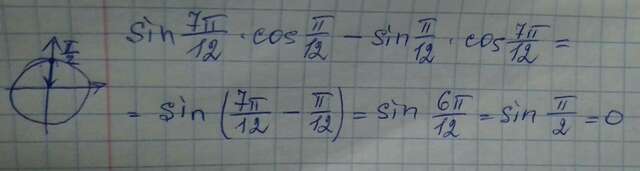 sin 7π/12 · cos π/12 − sin π/12 · cos 7π/12 =
π/2
= sin (7π/12 − π/12) = sin 6π/12 = sin π/2 = 0